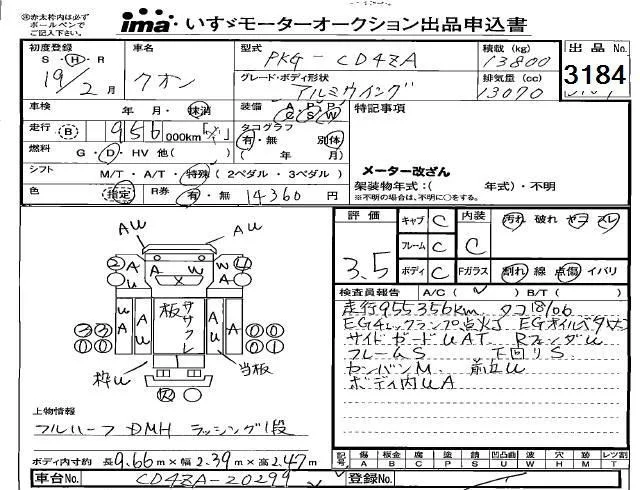 ㊟赤太枠内は必ず
ボールペンで
ご記入下さい。
ima いすゞモーターオークション出品申込書
初度登録 S・H・R 19/2月
車名 クオン
型式 PKG-CD4ZA
グレード・ボディ形状 アルミウイング
積載 (kg) 13800
排気量 (cc) 13070
出品No. 3184
車検 年 月・抹消
装備 A P P C S W
特記事項
走行 B 956 000km
タコグラフ 有・無 別体 ( 年 月)
燃料 G・D・HV 他( )
メーター改ざん
シフト M/T・A/T・特殊(2ペダル・3ペダル)
架装物年式:( 年式)・不明
※不明の場合は、不明に○をする。
色 指定 R券 有・無 14360円
評価 3.5
キャブ C 内装 C 汚れ 破れ ヤコ スレ
フレーム C
ボディ C Fガラス 割れ 線 点傷 イバリ
検査員報告 A/C( ) B/T( )
走行955356km タコ18/06
サイドガードUAT RフェンダU
フレームS 下回りS
センバンM
ボディ内UA
AU AU
A U A W A W
2 4
板ササクレ
UA A A U
枠U 当板
上物情報
フルハーフ DMH ラッシング1段
ボディ内寸約 長9.66m×幅2.39m×高2.47m
記号 傷A 板金B 腐C 塗P 錆S 凹凸曲U 波W 穴H 時M レツ割T
車台No. CD4ZA-20299 登録No.